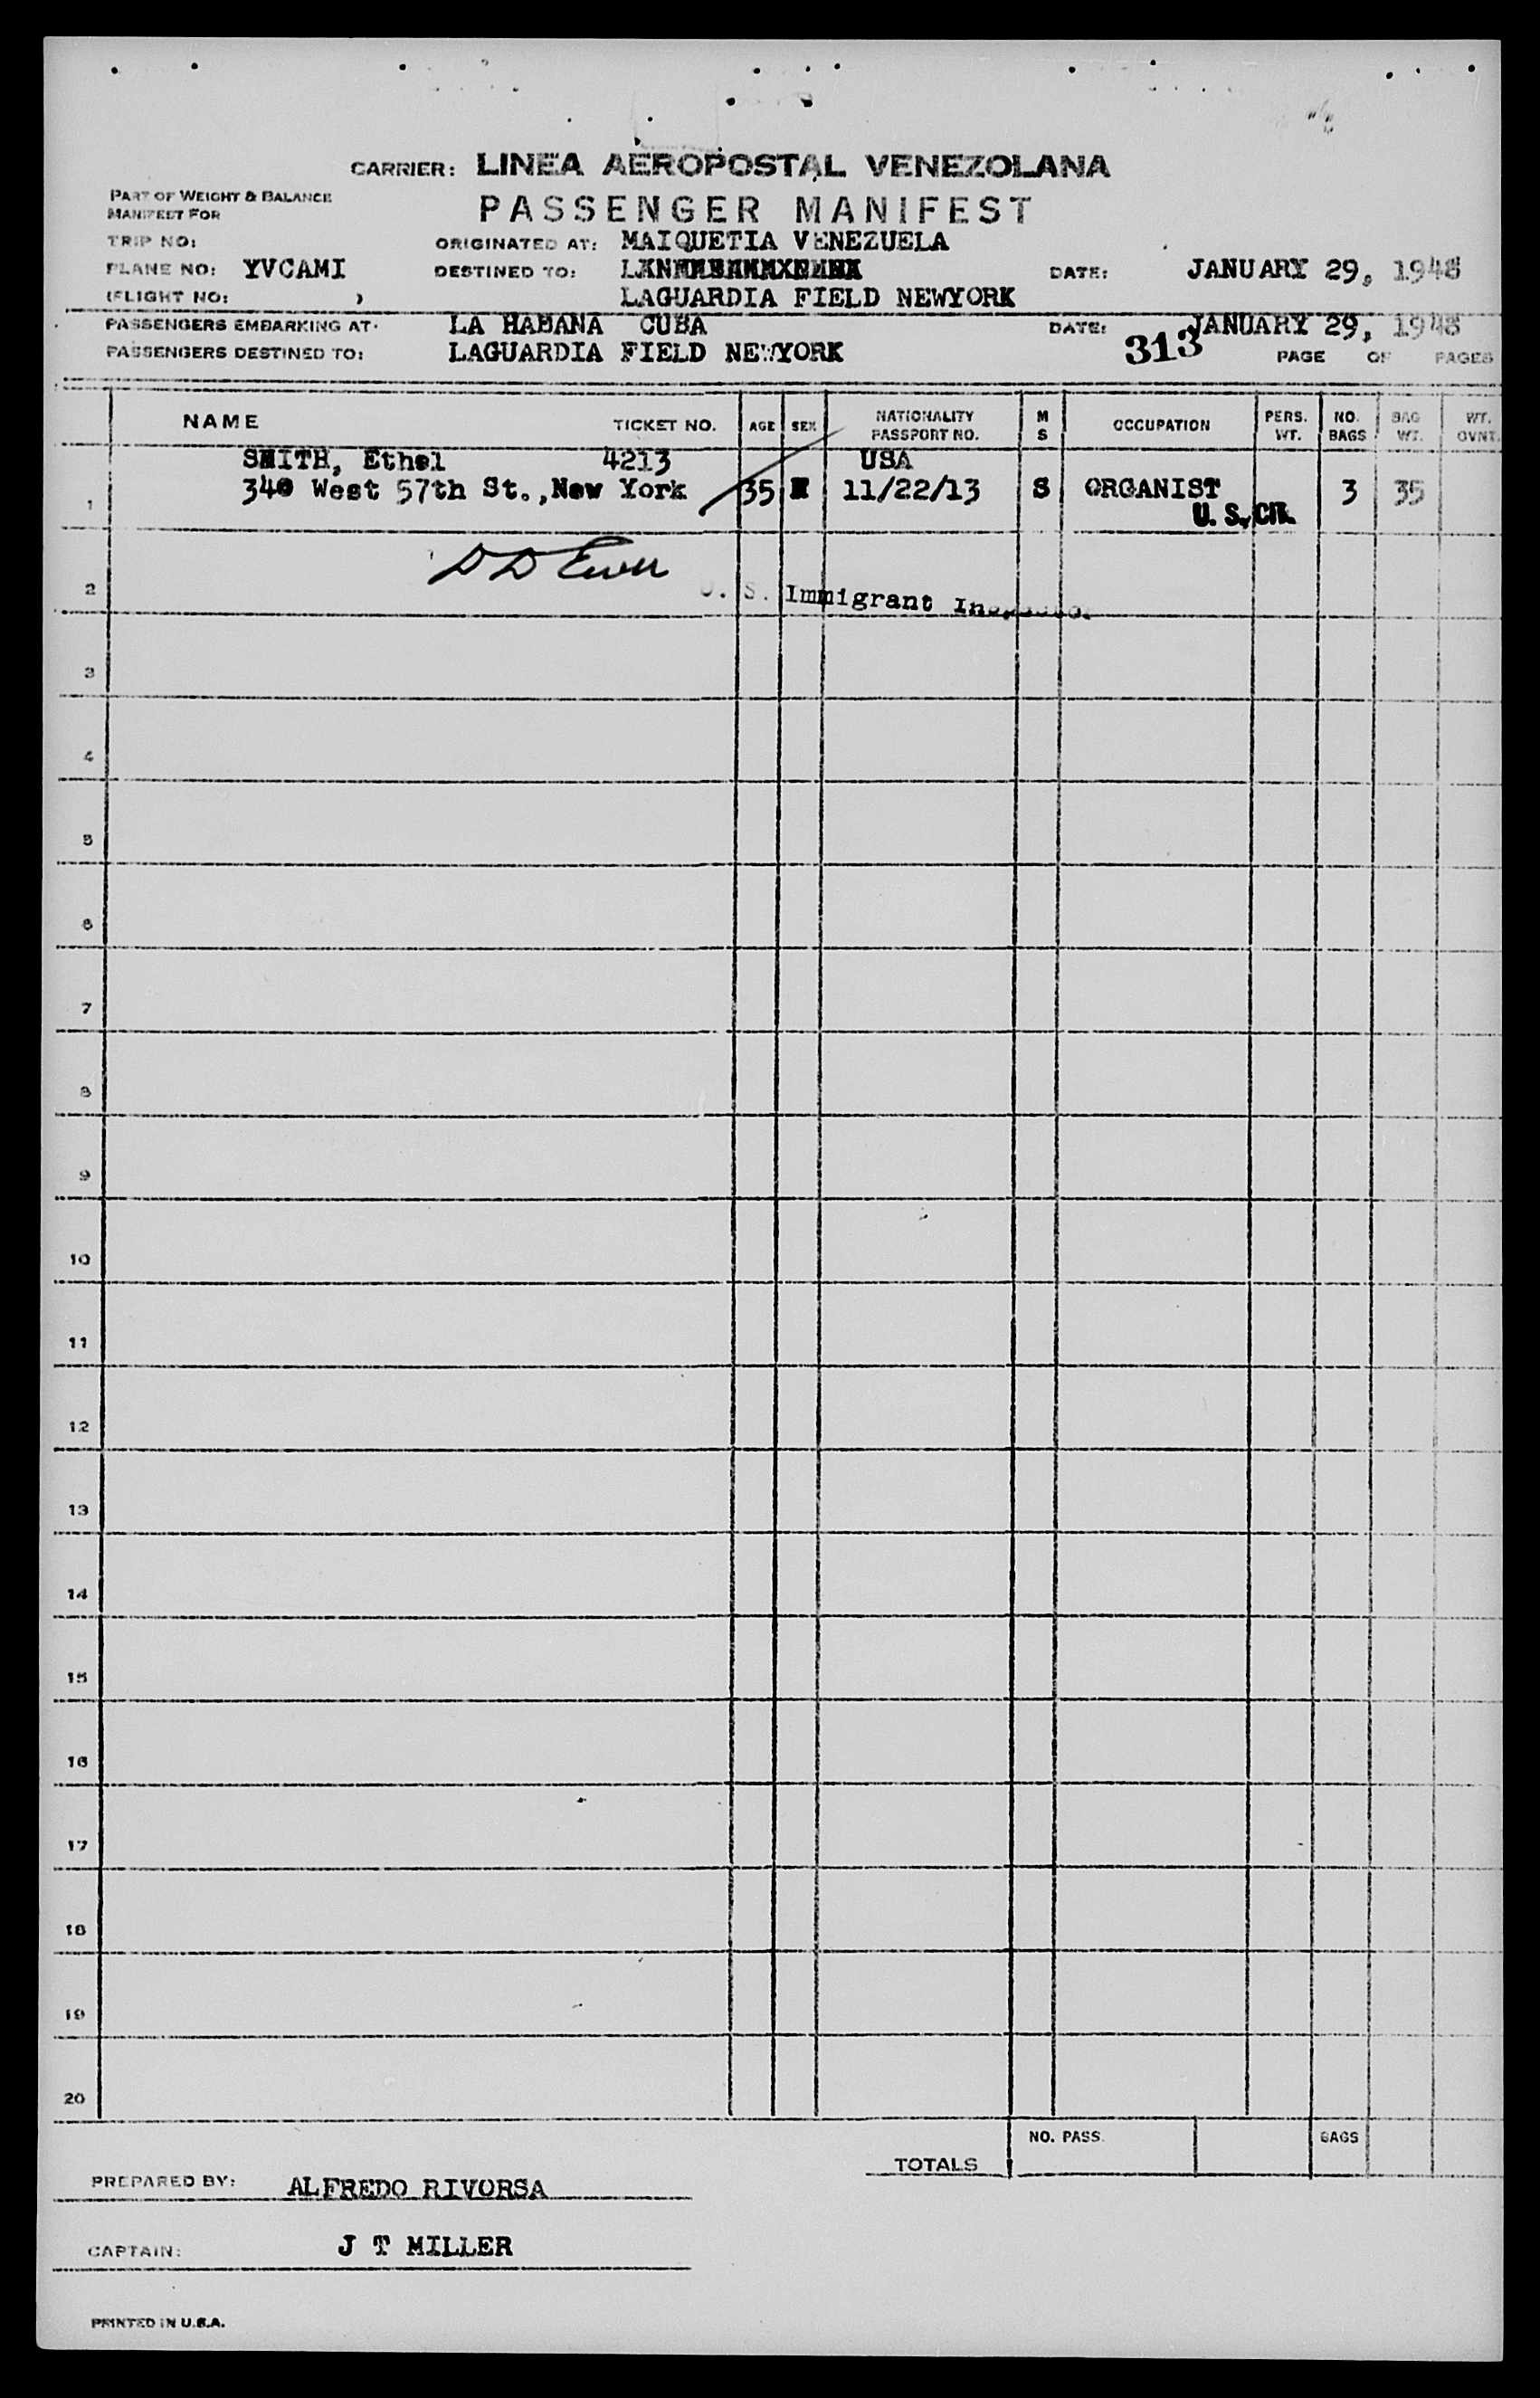 CARRIER: LINEA AEROPOSTAL VENEZOLANA
PART OF WEIGHT & BALANCE
MANIFEST FOR
PASSENGER MANIFEST
TRIP NO:
ORIGINATED AT: MAIQUETIA VENEZUELA
PLANE NO: YVCAMI
DESTINED TO:
DATE: JANUARY 29, 1948
(FLIGHT NO: )
LAGUARDIA FIELD NEWYORK
PASSENGERS EMBARKING AT: LA HABANA CUBA
DATE: JANUARY 29, 1948
PASSENGERS DESTINED TO: LAGUARDIA FIELD NEWYORK
313 PAGE OF PAGES
NAME TICKET NO. AGE SEX NATIONALITY PASSPORT NO. M S OCCUPATION PERS. WT. NO. BAGS BAG WT. WT. OVNT.
SMITH, Ethel 4213 USA
1 340 West 57th St., New York 35 11/22/13 S ORGANIST 3 35
U. S. CIT.
D D
2 U. S. Immigrant
3
4
5
6
7
8
9
10
11
12
13
14
15
16
17
18
19
20
TOTALS NO. PASS. BAGS
PREPARED BY: ALFREDO RIVORSA
CAPTAIN: J T MILLER
PRINTED IN U.S.A.